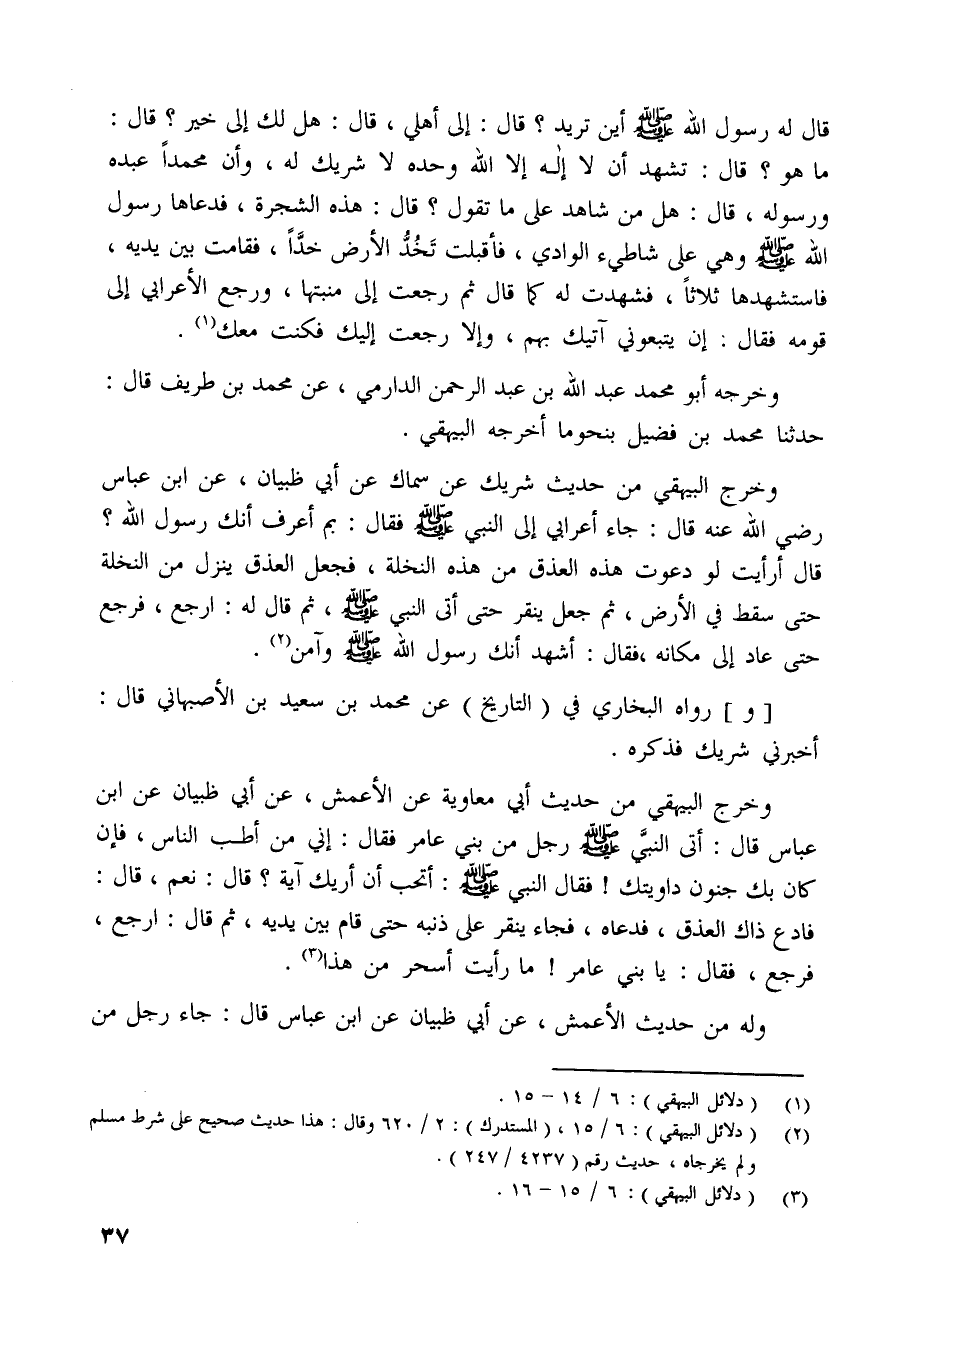 قال له رسول الله ﷺ أين تريد ؟ قال : إلى أهلي ، قال : هل لك إلى خير ؟ قال :
ما هو ؟ قال : تشهد أن لا إلٰه إلا الله وحده لا شريك له ، وأن محمداً عبده
ورسوله ، قال : هل من شاهد على ما تقول ؟ قال : هذه الشجرة ، فدعاها رسول
الله ﷺ وهي على شاطيء الوادي ، فأقبلت تَخُدُّ الأرض خدَّاً ، فقامت بين يديه ،
فاستشهدها ثلاثاً ، فشهدت له كما قال ثم رجعت إلى منبتها ، ورجع الأعرابي إلى
قومه فقال : إن يتبعوني آتيك بهم ، وإلا رجعت إليك فكنت معك(١) .
وخرجه أبو محمد عبد الله بن عبد الرحمن الدارمي ، عن محمد بن طريف قال :
حدثنا محمد بن فضيل بنحوما أخرجه البيهقي .
وخرج البيهقي من حديث شريك عن سماك عن أبي ظبيان ، عن ابن عباس
رضي الله عنه قال : جاء أعرابي إلى النبي ﷺ فقال : بم أعرف أنك رسول الله ؟
قال أرأيت لو دعوت هذه العذق من هذه النخلة ، فجعل العذق ينزل من النخلة
حتى سقط في الأرض ، ثم جعل ينقر حتى أتى النبي ﷺ ، ثم قال له : ارجع ، فرجع
حتى عاد إلى مكانه ،فقال : أشهد أنك رسول الله ﷺ وآمن(٢) .
[ و ] رواه البخاري في ( التاريخ ) عن محمد بن سعيد بن الأصبهاني قال :
أخبرني شريك فذكره .
وخرج البيهقي من حديث أبي معاوية عن الأعمش ، عن أبي ظبيان عن ابن
عباس قال : أتى النبيَّ ﷺ رجل من بني عامر فقال : إني من أطب الناس ، فإن
كان بك جنون داويتك ! فقال النبي ﷺ : أتحب أن أريك آية ؟ قال : نعم ، قال :
فادع ذاك العذق ، فدعاه ، فجاء ينقر على ذنبه حتى قام بين يديه ، ثم قال : ارجع ،
فرجع ، فقال : يا بني عامر ! ما رأيت أسحر من هذا(٣) .
وله من حديث الأعمش ، عن أبي ظبيان عن ابن عباس قال : جاء رجل من
(١) ( دلائل البيهقي ) : ٦ / ١٤ – ١٥ .
(٢) ( دلائل البيهقي ) : ٦ / ١٥ ، ( المستدرك ) : ٢ / ٦٢٠ وقال : هذا حديث صحيح على شرط مسلم
ولم يخرجاه ، حديث رقم ( ٤٢٣٧ / ٢٤٧ ) .
(٣) ( دلائل البيهقي ) : ٦ / ١٥ – ١٦ .
٣٧